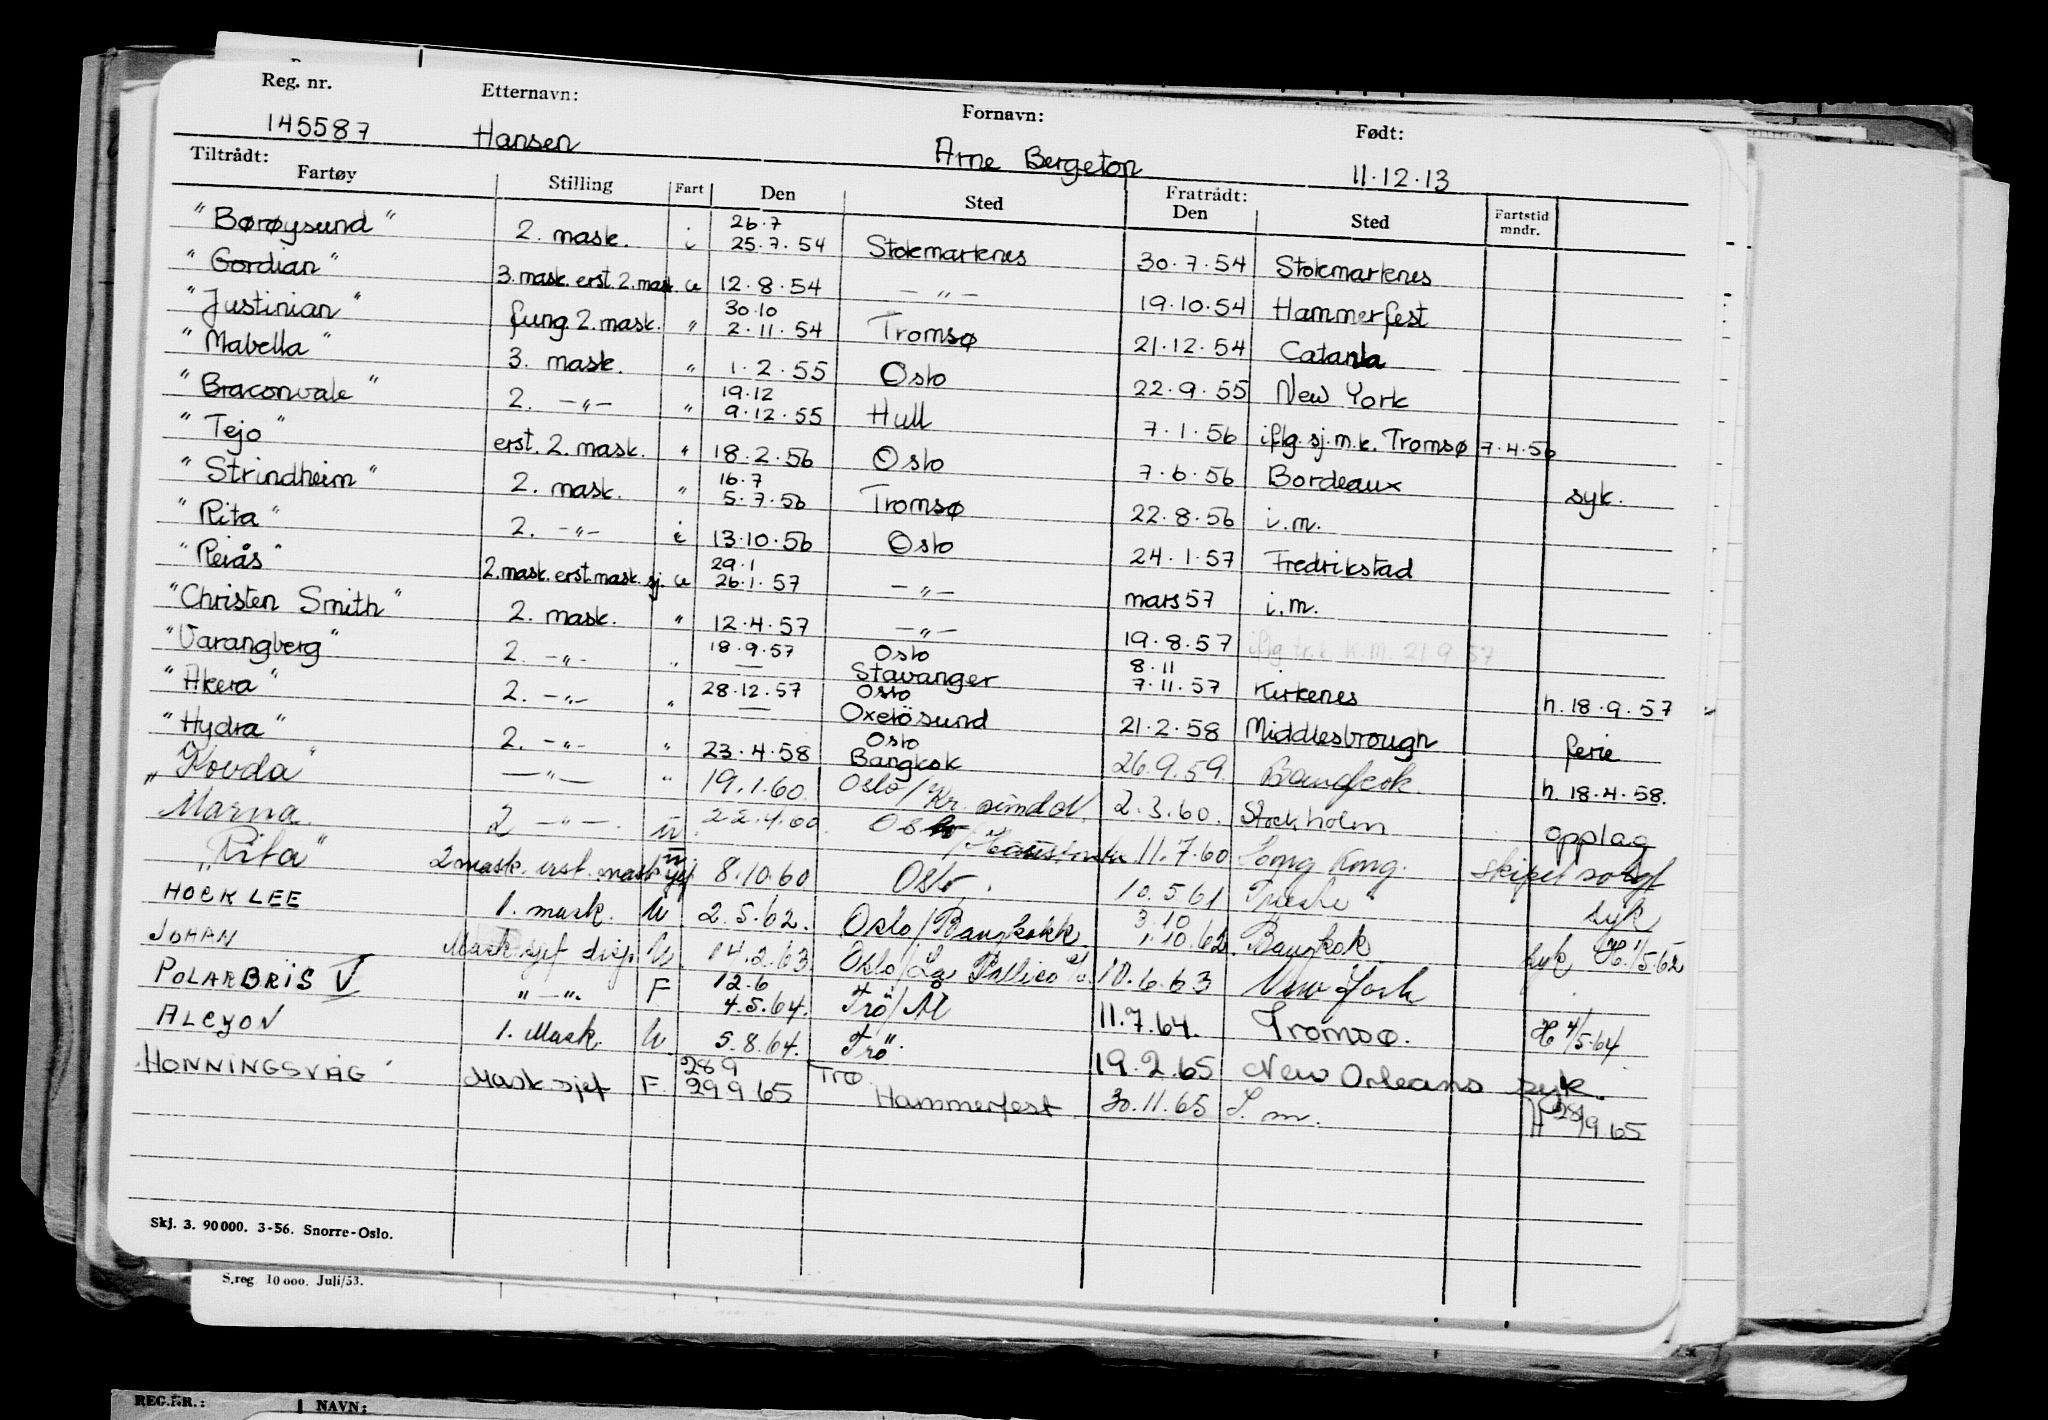 Reg. nr. Etternavn: Fornavn: Født:
145587 Hansen Arne Bergeton 11.12.13
Tiltrådt: Fratrådt:
Fartøy Stilling Fart Den Sted Den Sted Fartstid mndr.
"Børøysund" 2. mask. i 26.7 25.7.54 Stokmarknes 30.7.54 Stokmarknes
"Gordian" 3. mask. erst. 2. mask. u 12.8.54 —"— 19.10.54 Hammerfest
"Justinian" fung. 2. mask. " 30.10 2.11.54 Tromsø 21.12.54 Catania
"Mabella" 3. mask. " 1.2.55 Oslo 22.9.55 New York
"Braconvale" 2. —"— " 19.12 9.12.55 Hull 7.1.56 iflg. sj.m.k. Tromsø 7.4.56
"Tejo" erst. 2. mask. " 18.2.56 Oslo 7.6.56 Bordeaux syk.
"Strindheim" 2. mask. " 16.7 5.7.56 Tromsø 22.8.56 i.m.
"Rita" 2. —"— i 13.10.56 Oslo 24.1.57 Fredrikstad
"Reiås" 2. mask. erst. mask. sj. u 29.1 26.1.57 —"— mars 57 i.m.
"Christen Smith" 2. mask. " 12.4.57 —"— 19.8.57 iflg tr.k. K.M. 21.9.57
"Varangberg" 2. —"— " 18.9.57 — Oslo Stavanger 8.11 7.11.57 Kirkenes h. 18.9.57
"Akera" 2. —"— " 28.12.57 — Oslo Oxelösund 21.2.58 Middlesbrough ferie
"Hydra" 2. —"— " 23.4.58 Oslo Bangkok 26.9.59. Bangkok. h. 18.4.58.
"Kovda" —"— " 19.1.60. Oslo/Kr. sund N. 2.3.60. Stockholm opplag
Marna. 2 —"—. u. 22.4.60. Oslo/ 11.7.60 Hong Kong. skipet solgt
"Rita" 2 mask. erst. mask sjef u 8.10.60 Oslo. 10.5.61 Trieste syk
HOCK LEE 1. mask. U 2.5.62. Oslo/Bangkokk. 3.10 1.10.62. Bangkok. syk H. 1/5.62
JOHAN Mask. sjef disp. U. 14.2.63. Oslo/La 10.6.63 New York
POLARBRIS V "—". F 12.6 4.5.64. Trø/Å 11.7.64. Tromsø. H 4/5.64
ALCYON 1. Mask. U. 5.8.64. Trø. 19.2.65 New Orleans syk.
HONNINGSVÅG Mask sjef F. 28 9 29 9 65 Trø. Hammerfest. 30.11.65 I. m. H 28/9 65
Skj. 3. 90 000. 3-56. Snorre-Oslo.
S.reg 10 000. Juli/53.
REG.NR.: NAVN: